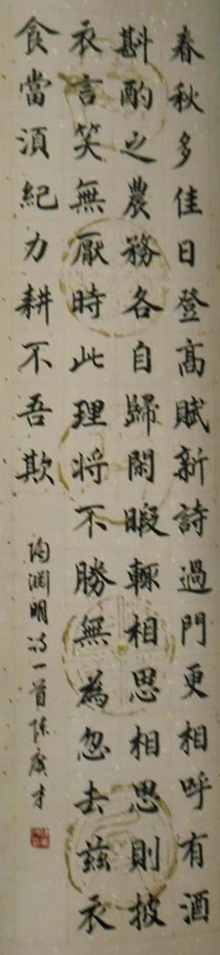 春秋多佳日登高賦新詩過門更相呼有酒
斟酌之農務各自歸閑暇輒相思相思則披
衣言笑無厭時此理将不勝無為忽去玆衣
食當須紀力耕不吾欺
陶渊明诗一首陈广才